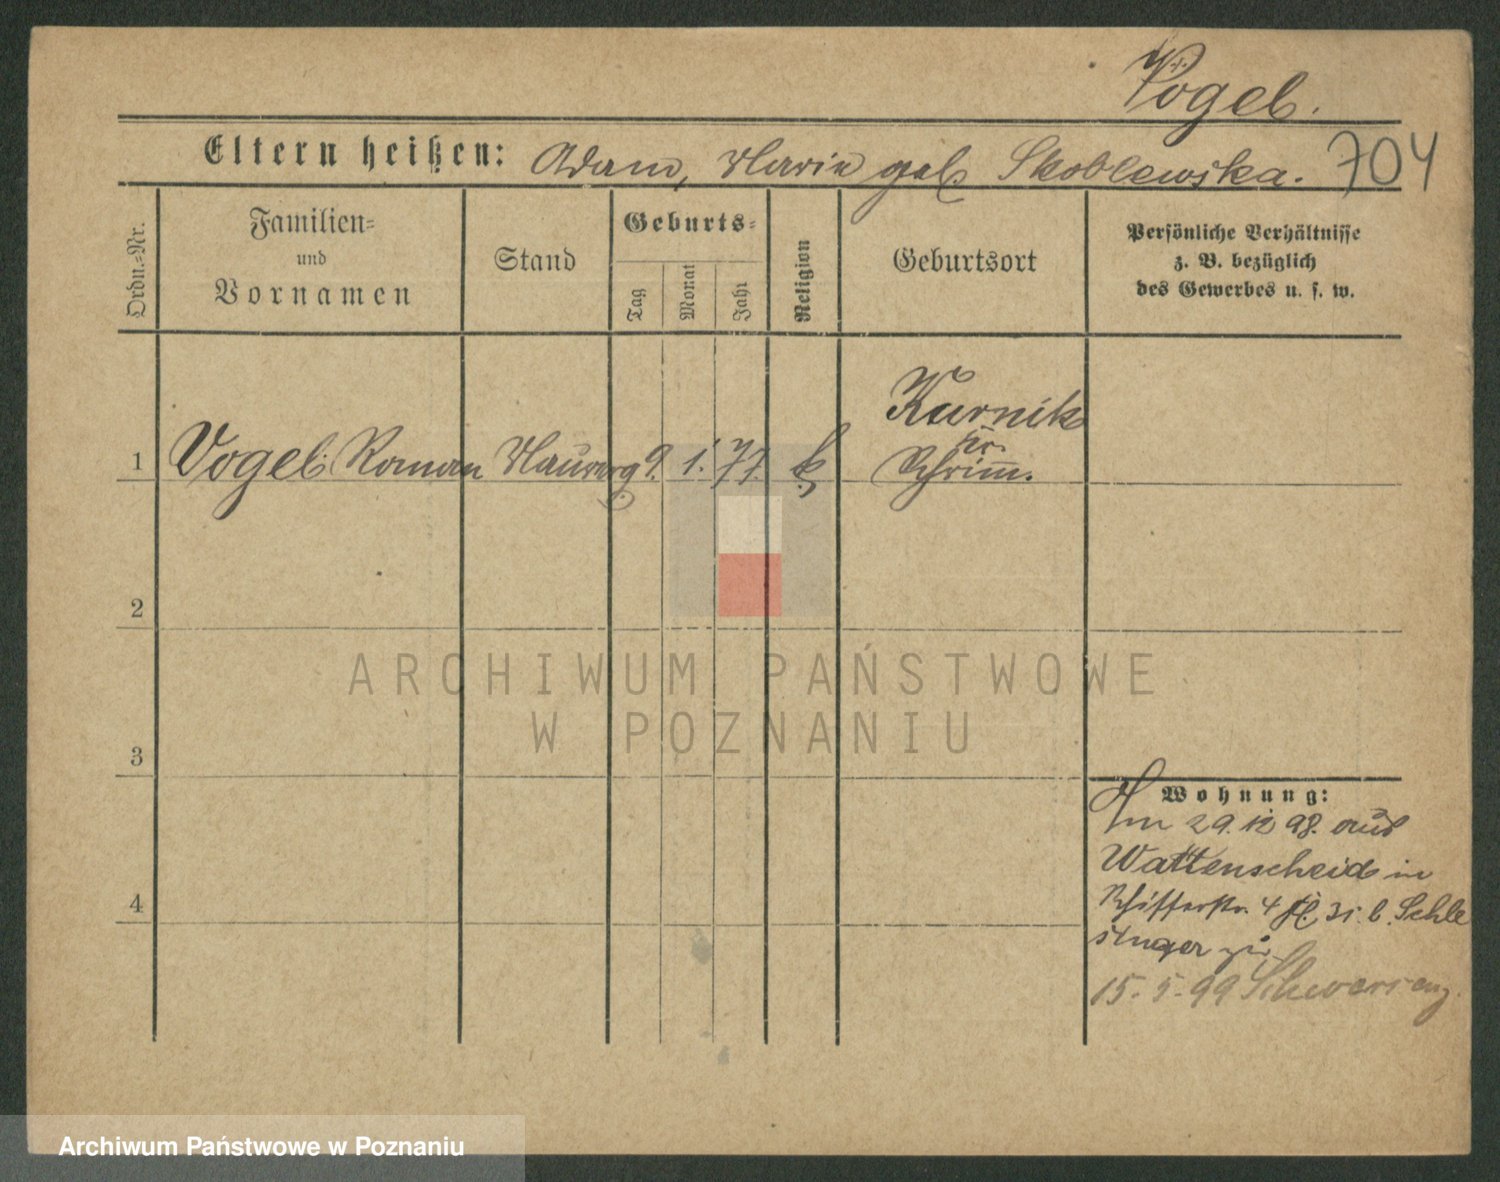 Vogel.
Eltern heißen: Adam, Maria geb. Skoblewska. 704
Ordn.-Nr.
Familien-
und
Vornamen
Stand
Geburts-
Tag
Monat
Jahr
Religion
Geburtsort
Persönliche Verhältnisse
z. B. bezüglich
des Gewerbes u. s. w.
Kurnik
Kr.
1 Vogel Roman Maurerg 9. 1. 77. k. Schrimm.
2
ARCHIWUM PAŃSTWOWE
W POZNANIU
3
Wohnung:
29. 12 98. aus
Wattenscheid in
Schifferstr. 4 b. Schle
singer
15. 5. 99 Schwersenz.
4
Archiwum Państwowe w Poznaniu